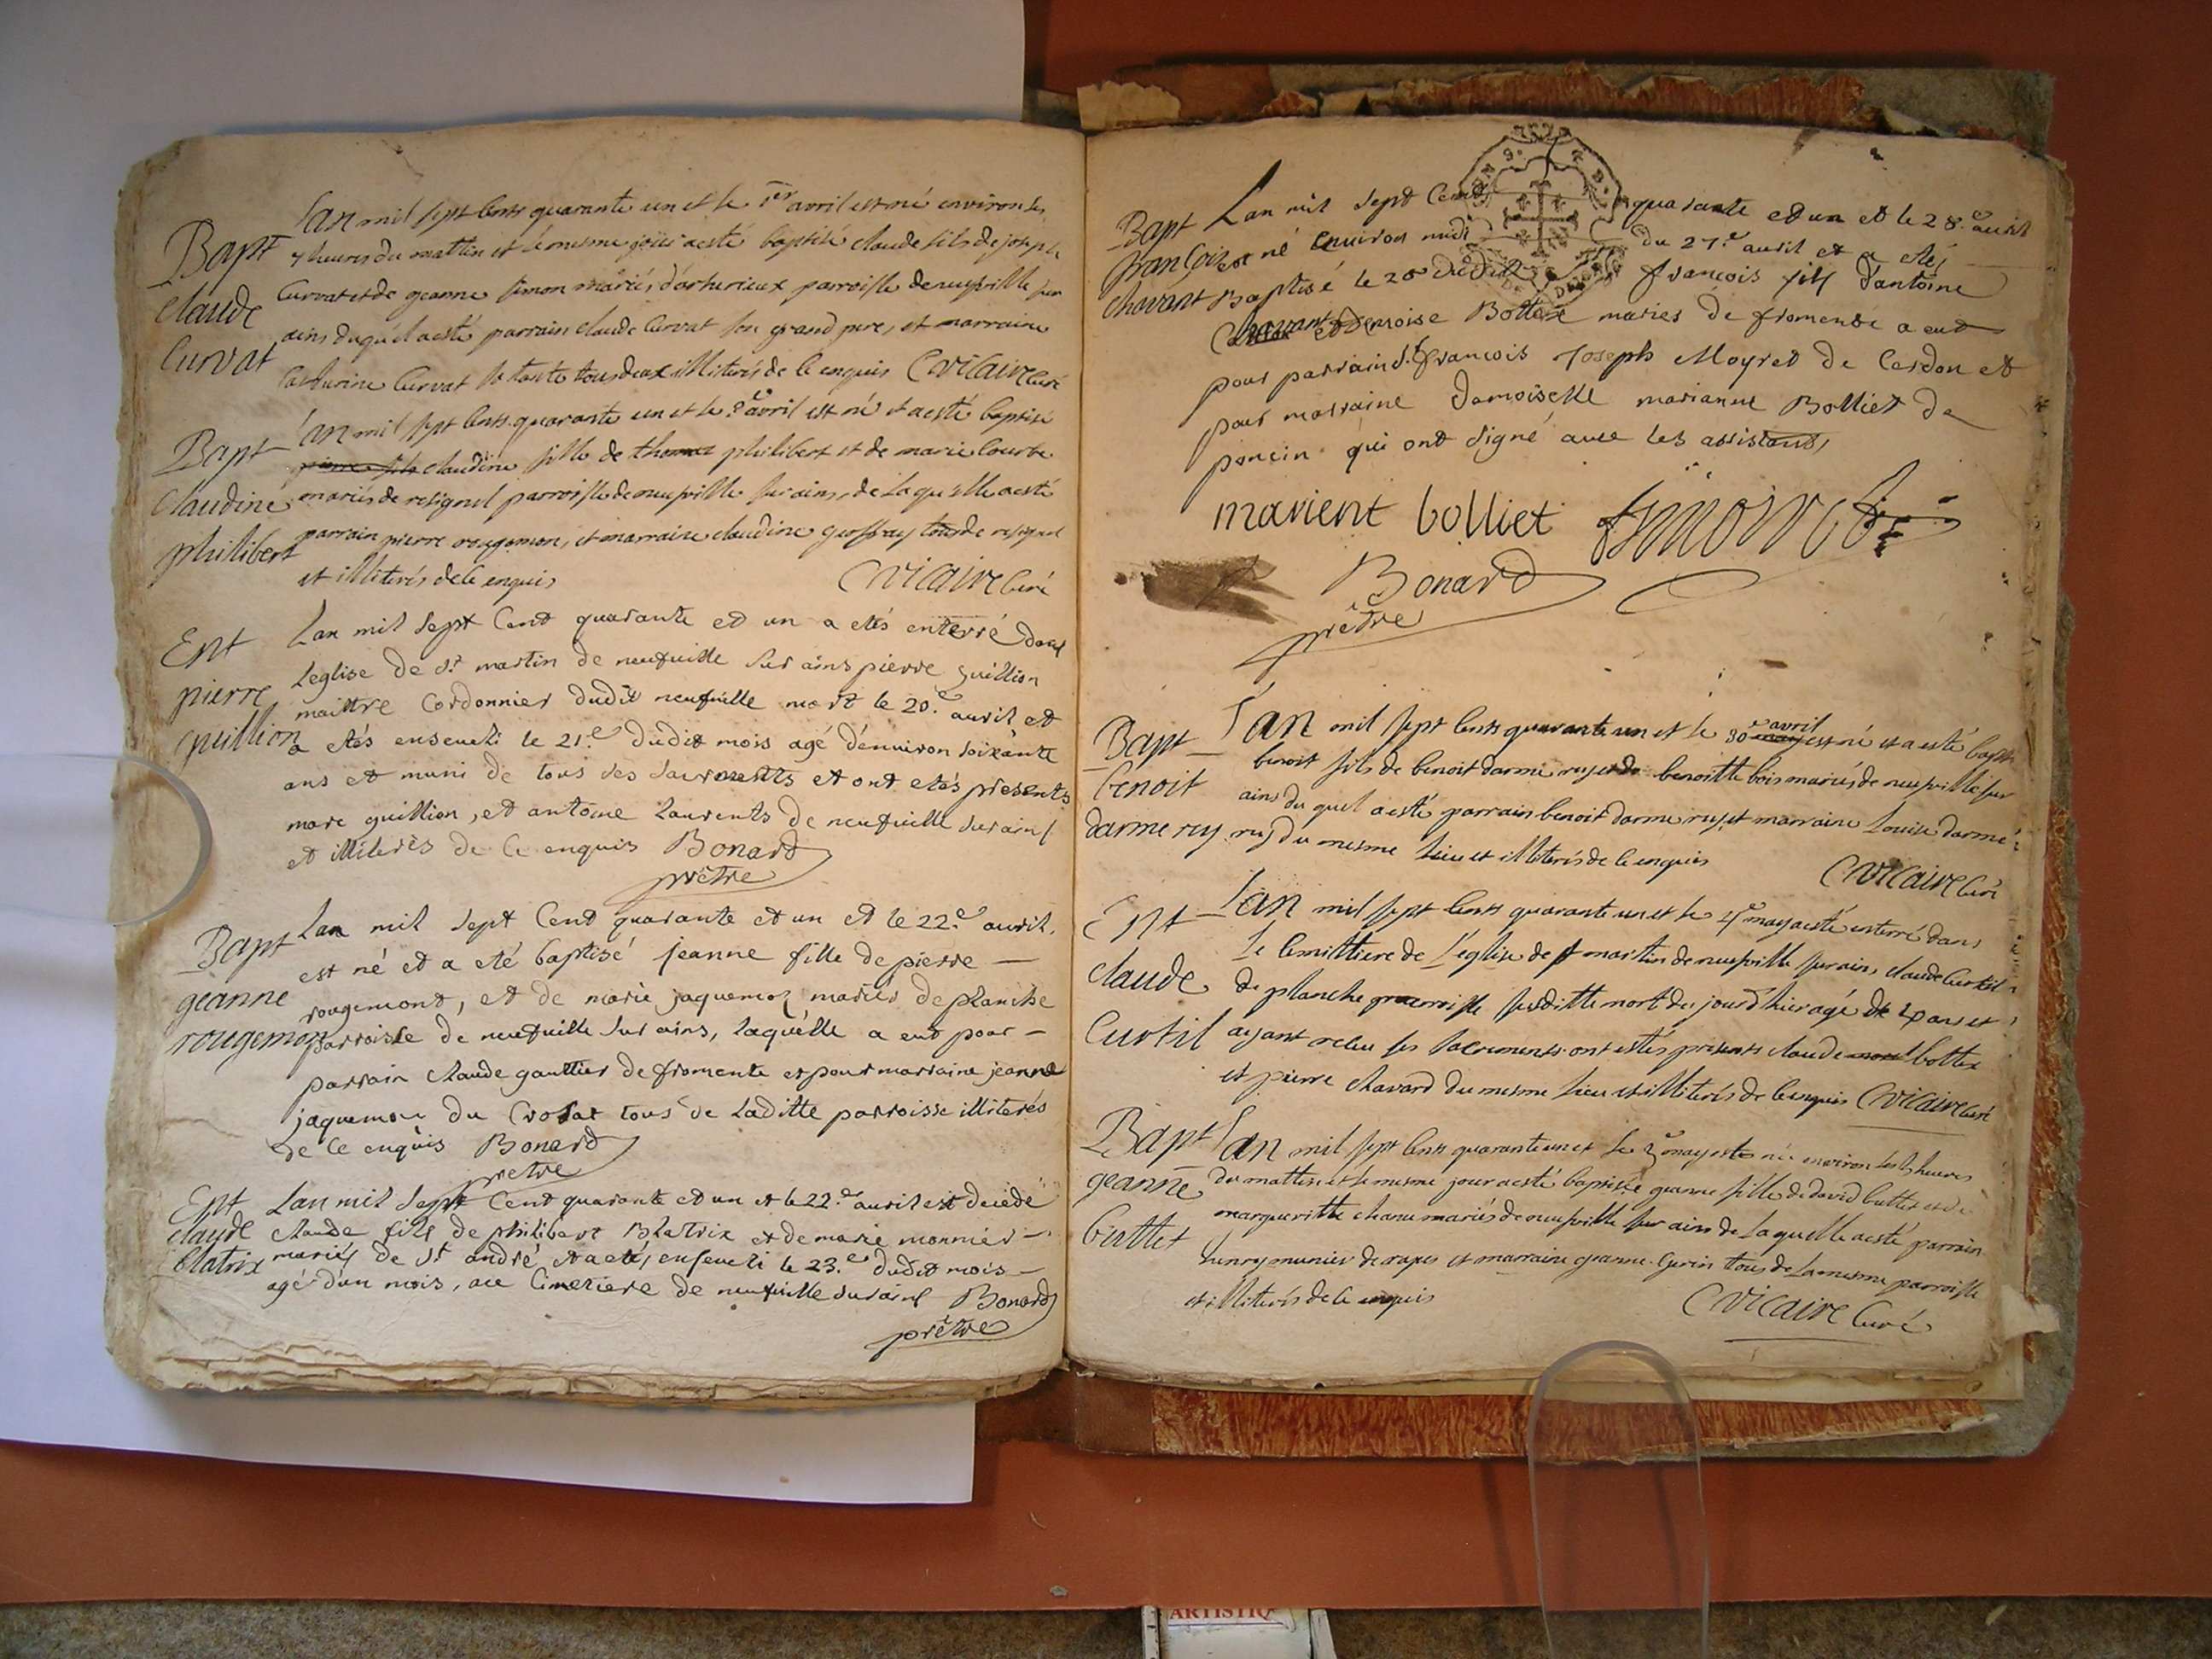 Bapt
claude
Curvat
Lan mil sept cents quarante un et le 1er avril est né environ les
7 heures du mattin et le mesme jour a esté baptisé claude fils de joseph
Curvat et de geanne simon mariés parroisse de neufville sur
ains duquel a esté parrain claude Curvat son grand pere, et marraine
Curvat sa tante tous deux illiterés de ce enquis C vicaire curé
Bapt
Claudine
philibert
Lan mil sept cents quarante un et le avril est né et a esté baptisé
claudine fille de thomas philibert et de marie Courbe
mariés de resignel parroisse de neufville sur ains, de laquelle a esté
parrain pierre rougemon, et marraine claudine geoffray tous de resignel
et illiterés de ce enquis C vicaire curé
Ent
pierre
guillion
Lan mil sept Cent quarante et un a etés enterré dans
Leglise de st martin de neufuille sur ains pierre guillion
maittre Cordonnier dudit neufuille mort le 20.e auril et
a etés enseueli le 21.e dudit mois agé d'enuiron soixante
ans et muni de tous ses sacrements et ont etés presents
marc guillion, et antoine Laurents de neufuille sur ains
et illiterés de ce enquis Bonard
prêtre
Bapt
geanne
rougemon
Lan mil sept Cent quarante et un et le 22.e auril
est né et a eté baptisé jeanne fille de pierre
rougemont, et de marie jaquemoz mariés de planche
parroisse de neufuille sur ains, laquelle a eut pour
parrain claude gauttier de fromente et pour marraine jeanne
jaquemoz du Crosat tous de laditte parroisse illiterés
de ce enquis Bonard
prêtre
Ent
claude
blatrix
Lan mil sept Cent quarante et un et le 22.e auril est decedé
claude fils de philibert Blatrix et de marie monnier
mariés de st andré et a etés enseueli le 23.e dudit mois
agé d'un mois, au Cimetiere de neufuille sur ains Bonard
prêtre
Bapt
françois
chavant
Lan mil sept Cent quarante et un et le 28.e auril
est né enuiron midi du 27.e auril et a etés
Baptisé le 28 dudit françois fils d'antoine
Chavant et Bottex mariés de fromente a eut
pour parrain sr françois Joseph Moyret de Cerdon et
pour marraine Damoiselle marianne Bolliet de
poncin qui ont signé auec les assistants
marient bolliet
Bonard
prêtre
Bapt
benoit
darmerey
Lan mil sept cents quarante un et le 30e avril est né et a esté bapt
benoit fils de benoit darmerey et de benoitte bois mariés de neufville sur
ains du quel a esté parrain benoit darmerey et marraine Louise darme
rey du mesme lieu et illiterés de ce enquis C vicaire curé
Ent
claude
Curtil
Lan mil sept cents quarante un et le may a esté enterré dans
le cemittiere de l'église de st martin de neufville sur ains, claude Curtil
de planche parroisse susditte mort du jour d'hier agé de ans et
ayant receu ses sacrements ont estés presents claude bottex
et pierre chavard du mesme lieu et illiterés de ce enquis C vicaire curé
Bapt
geanne
buttet
Lan mil sept cents quarante un et le 3e may est né environ les heures
du mattin et le mesme jour a esté baptisée geanne fille de david buttet et de
margueritte mariés de neufville sur ains de laquelle a esté parrain
henry munier de rapes et marraine geanne Gerin tous de la mesme parroisse
et illiterés de ce enquis C vicaire Curé
ARTISTIQ